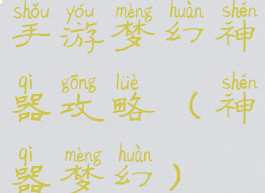 shǒu yóu mèng huàn shén
手游梦幻神
qì gōng lüè shén
器攻略(神
qì mèng huàn
器梦幻)